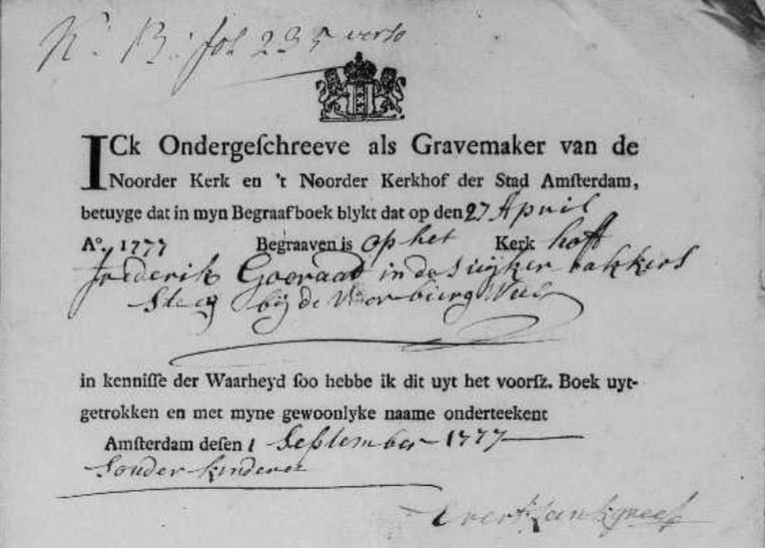 N: B: fol 237 verso
ICk Ondergeſchreeve als Gravemaker van de
Noorder Kerk en 't Noorder Kerkhof der Stad Amſterdam,
betuyge dat in myn Begraafboek blykt dat op den 27 April
A°. 1777 Begraaven is op het Kerk hoff
Frederik Gooraad in de Suijker bakkers
Steeg bij de Voorburgwal
in kenniſſe der Waarheyd ſoo hebbe ik dit uyt het voorſz. Boek uyt-
getrokken en met myne gewoonlyke naame onderteekent
Amſterdam deſen 1 September 1777
Sonder kinderen
Evert